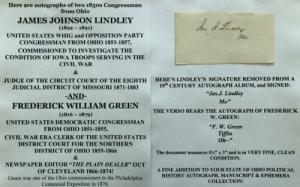 Here are autographs of two 1850s Congressmen
from Ohio
JAMES JOHNSON LINDLEY
(1822 – 1891)
UNITED STATES WHIG and OPPOSITION PARTY
CONGRESSMAN FROM OHIO 1853-1857,
COMMISSIONED TO INVESTIGATE THE
CONDITION OF IOWA TROOPS SERVING IN THE
CIVIL WAR
&
JUDGE OF THE CIRCUIT COURT OF THE EIGHTH
JUDICIAL DISTRICT OF MISSOURI 1871-1883
-AND-
FREDERICK WILLIAM GREEN
(1816 – 1879)
UNITED STATES DEMOCRATIC CONGRESSMAN
FROM OHIO 1851-1855,
CIVIL WAR ERA CLERK OF THE UNITED STATES
DISTRICT COURT FOR THE NORTHERN
DISTRICT OF OHIO 1855-1866
&
NEWSPAPER EDITOR "THE PLAIN DEALER" OUT
OF CLEVELAND 1866-1874!
Green was one of the Ohio commissioners to the Philadelphia
Centennial Exposition in 1876.
Jas. J. Lindley
Mo
HERE'S LINDLEY'S SIGNATURE REMOVED FROM A
19th CENTURY AUTOGRAPH ALBUM, and SIGNED:
"Jas.J. Lindley
Mo"
THE VERSO BEARS THE AUTOGRAPH OF FREDERICK
W. GREEN:
"F. W. Green
Tiffin
Oh-"
The document measures x and is in VERY FINE, CLEAN
CONDITION.
A FINE ADDITION TO YOUR STATE OF OHIO POLITICAL
HISTORY AUTOGRAPH, MANUSCRIPT & EPHEMERA
COLLECTION!